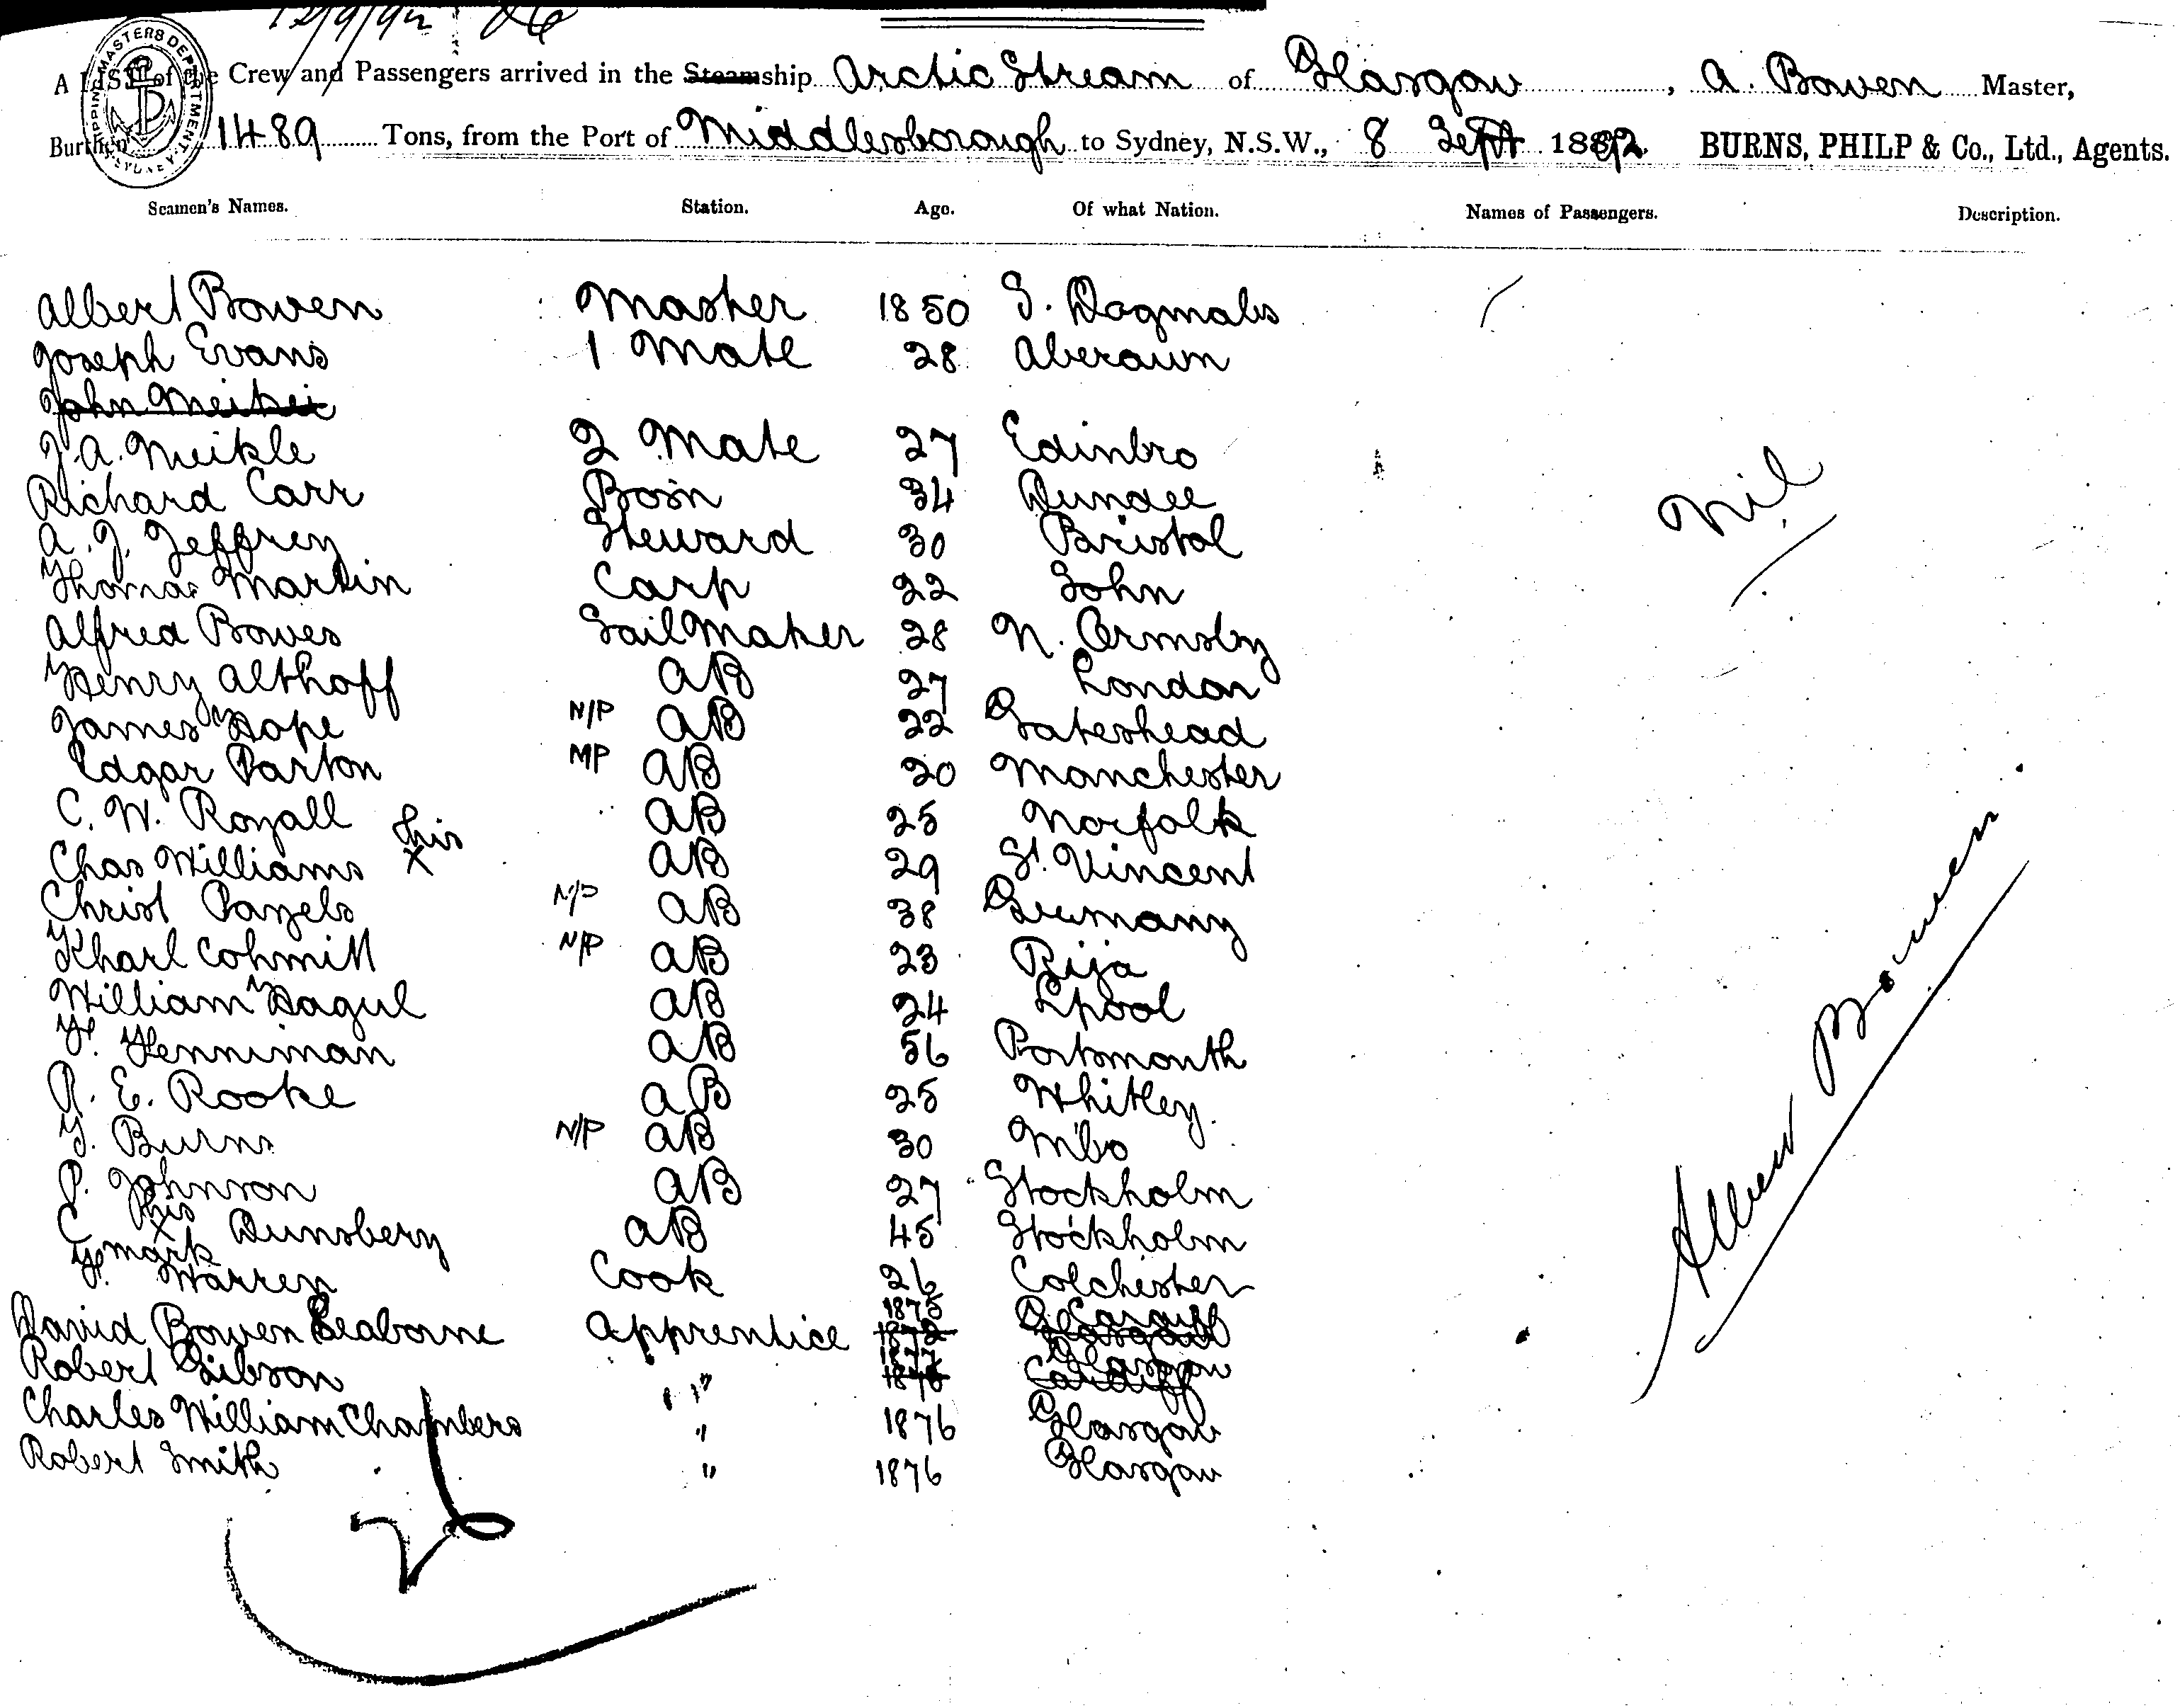 12/9/92
SHIPPING MASTERS DEPARTMENT
A LIST of the Crew and Passengers arrived in the Steamship Arctic Stream of Glasgow, A. Bowen Master,
Burthen 1489 Tons, from the Port of Middlesborough to Sydney, N.S.W., 8 Sept 1892 BURNS, PHILP & Co., Ltd., Agents.
Seamen's Names. Station. Age. Of what Nation. Names of Passengers. Description.
Albert Bowen Master 1850 S. Dogmals
Joseph Evans 1 Mate 28 Aberaum
John Meikei
J. A. Meikle 2 Mate 27 Edinbro
Richard Carr Bosn 34 Dundee
Nil
A. J. Jeffrey Steward 30 Bristol
Thomas Martin Carp 22 John
Alfred Bowes Sail Maker 28 N. Ormsby
Henry Althoff AB 27 London
James Hope N/P AB 22 Gateshead
Edgar Parton MP AB 20 Manchester
C. W. Royall AB 25 Norfolk
Chas Williams his x AB 29 St. Vincent
Christ Pazels N/P AB 38 Germany
Kharl Cohmill N/P AB 23 Rija
William Hagul AB 24 Lpool
H. Henniman AB 56 Portsmouth
R. E. Rooke AB 25 Whitley.
J. Burns N/P AB 30 Mbo
P. Johnson AB 27 Stockholm
C. his x mark Dunsbery AB 45 Stockholm
H. Warren Cook 26 Colchester
David Bowen Seaborne Apprentice 1875 1872 Cardiff Glasgow
Robert Gibson " 1877 1875 Glasgow Cardiff
Charles William Chambers " 1876 Glasgow
Robert Smith " 1876 Glasgow
Albert Bowen